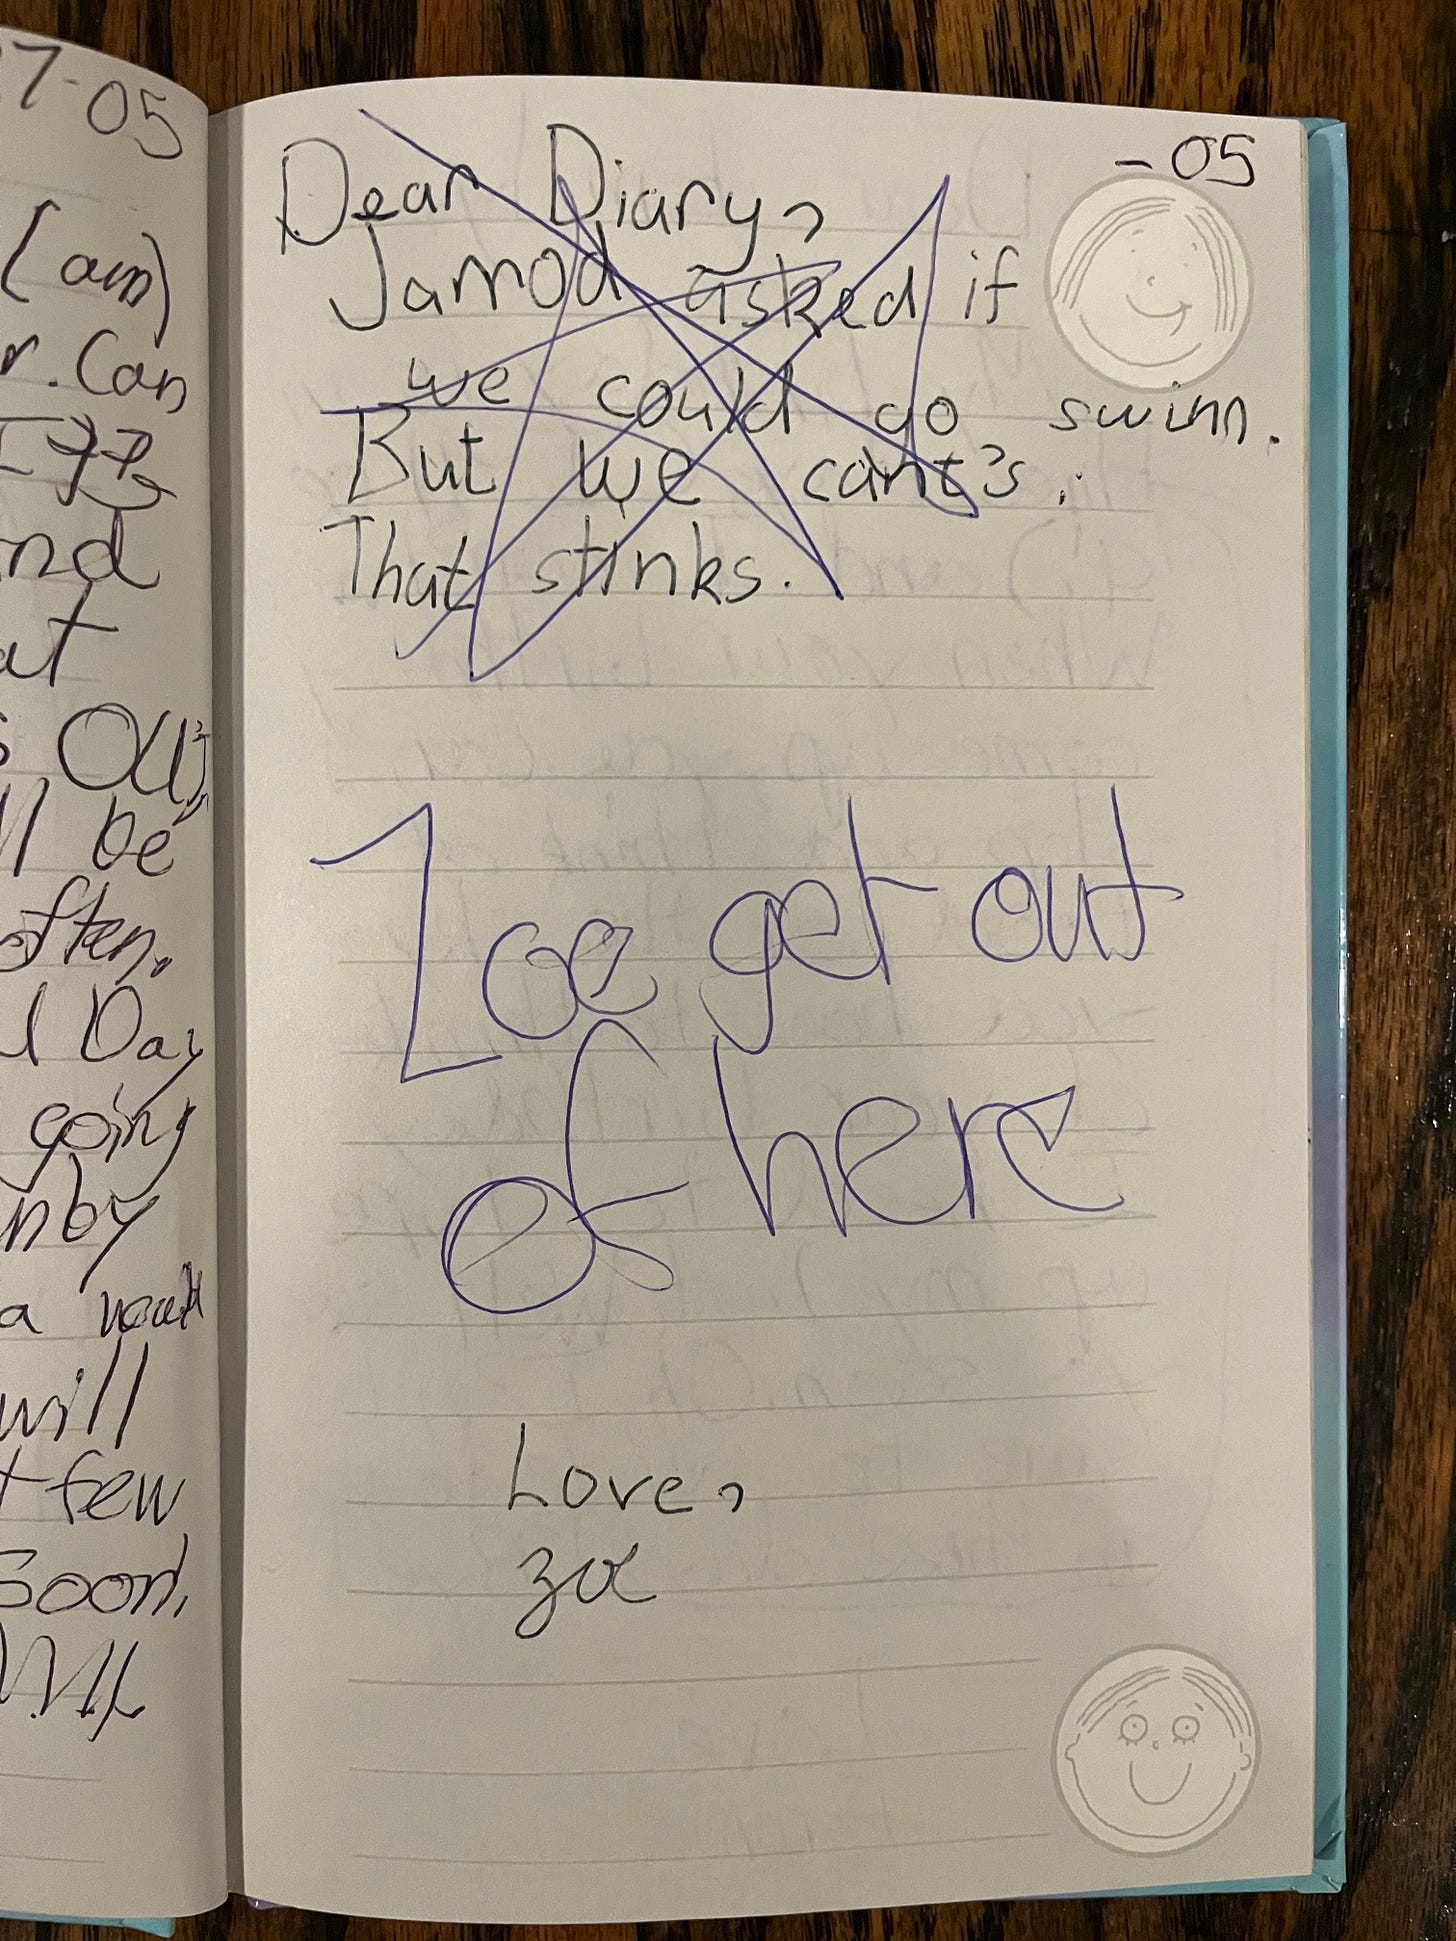 7-05
(am)
r. Can
nd
at
s
ll be
often.
l Day
going
nby
a
will
t few
soon,
- 05
Dear Diary,
Jarrod asked if
we could go swim.
But we cant's.
That stinks.
Zoe get out
of here
Love,
Zoe